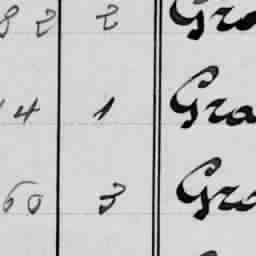 82 2 Gra
4 1 Gra
60 3 Gra